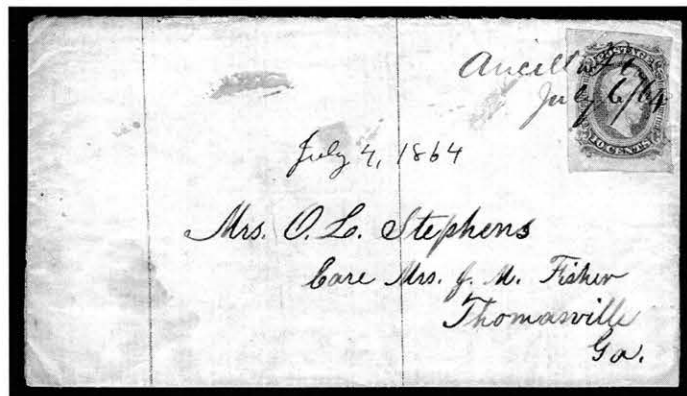 Aucilla Fla
July 6/64
POSTAGE
10 CENTS
July 4, 1864
Mrs. O. L. Stephens
Care Mrs. J. M. Fisher
Thomasville
Ga.